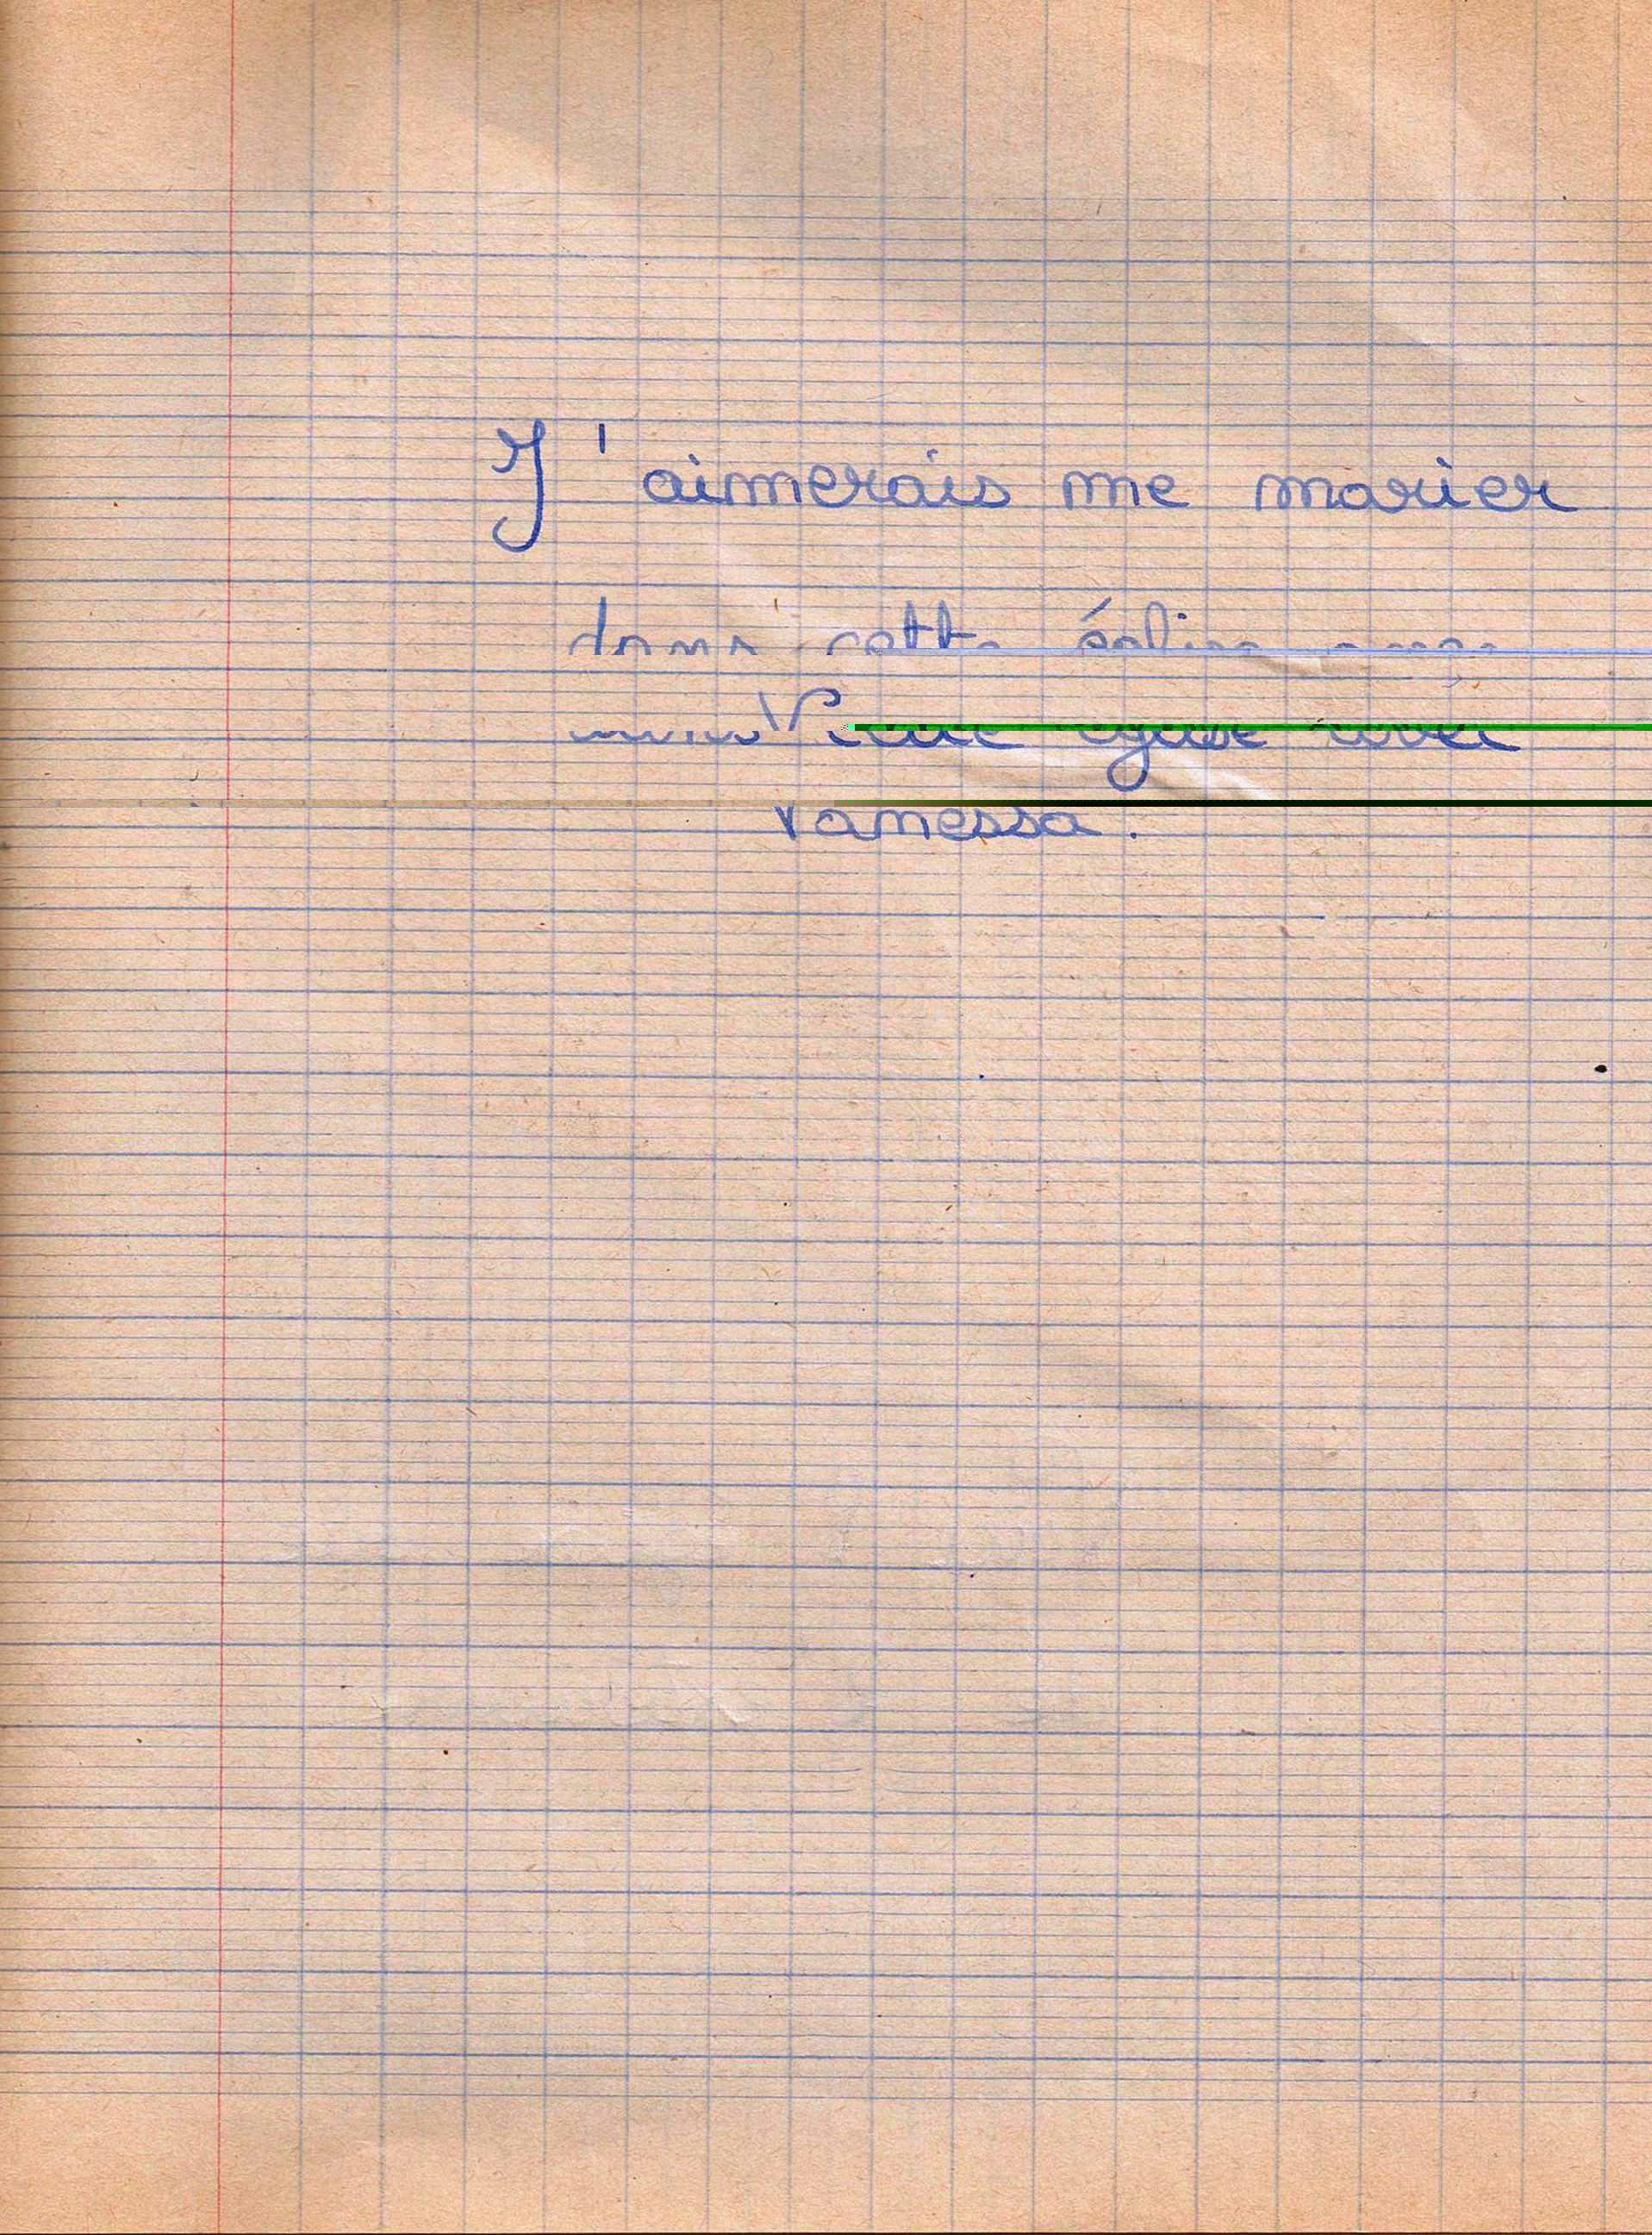 J'aimerais me marier
dans cette église avec
Vanessa.